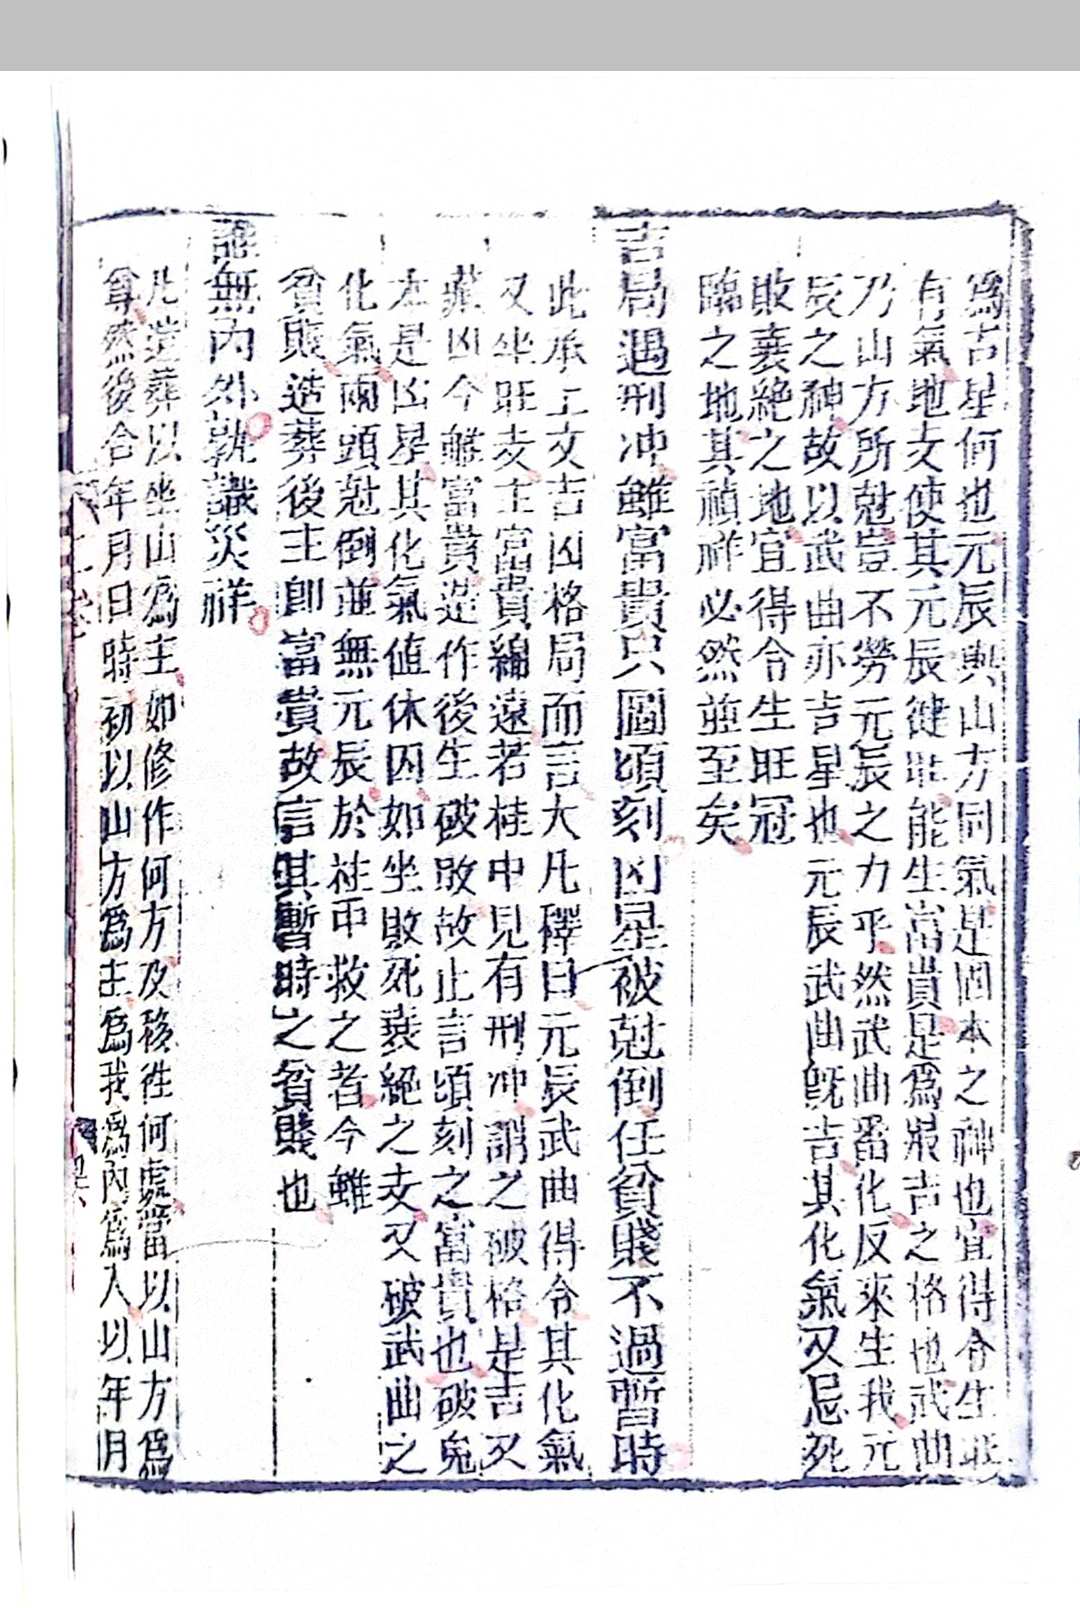 爲吉星何也元辰與山方同氣是固本之神也宜得令生旺
有氣地支使其元辰健旺能生富貴是爲最吉之格也武曲
乃山方所尅豈不勞元辰之力乎然武曲畨化反來生我元
辰之神故以武曲亦吉星也元辰武曲旣吉其化氣又忌死
敗衰絶之地宜得令生旺冠
臨之地其禎祥必然並至矣
吉局遇刑冲雖富貴只圖頃刻凶星被尅倒任貧賤不過暫時
此承上文吉凶格局而言大凡擇日元辰武曲得令其化氣
又坐旺支主富貴綿遠若柱中見有刑冲謂之破格是吉又
藏凶今雖富貴造作後生破敗故止言頃刻之富貴也破鬼
本是凶星其化氣值休囚如坐敗死衰絶之支又破武曲之
化氣兩頭尅倒並無元辰於柱中救之者今雖
貧賤造葬後主卽富貴故言其暫時之貧賤也
誰無内外孰識災祥
凡造葬以坐山爲主如修作何方及移徃何處當以山方爲
尊然後合年月日時初以山方爲主爲我爲内爲人以年月